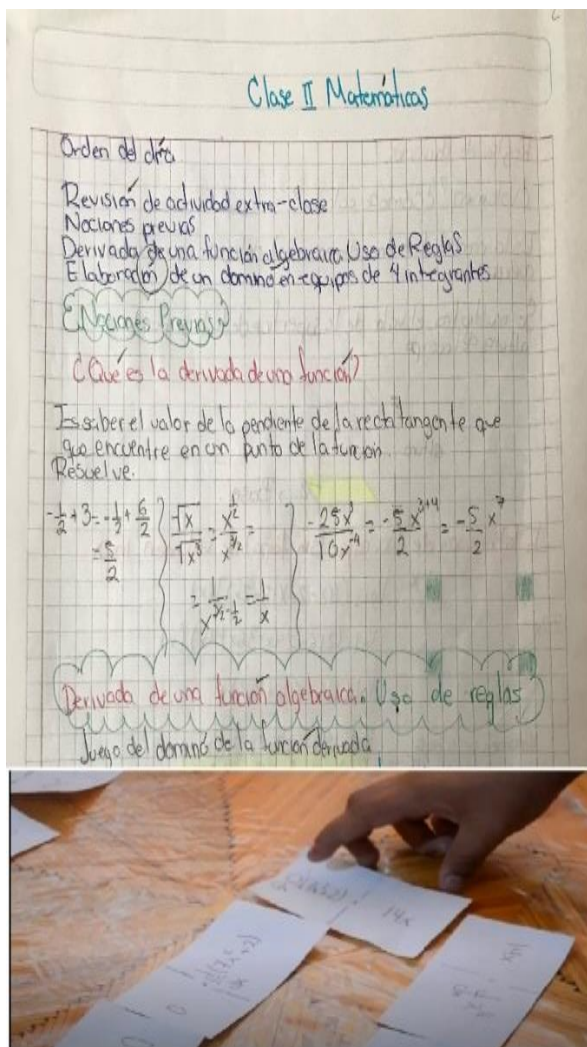 Clase II Matemáticas
Orden del día
Revisión de actividad extra-clase
Nociones previas
Derivada de una función algebraica. Uso de Reglas
Elaboración de un dominó en equipos de 4 integrantes
Nociones Previas
¿Qué es la derivada de una función?
Es saber el valor de la pendiente de la recta tangente que
que encuentre en un punto de la función.
Resuelve.
-1/2 + 3 = -1/2 + 6/2
= 5/2
√x / √x³ = x^(1/2) / x^(3/2) =
= 1 / x^(3/2 - 1/2) = 1/x
-25x³ / 10x⁻⁴ = -5x³⁺⁴ / 2 = -5/2 x⁷
Derivada de una función algebraica. Uso de reglas
Juego del dominó de la función derivada
14x
0